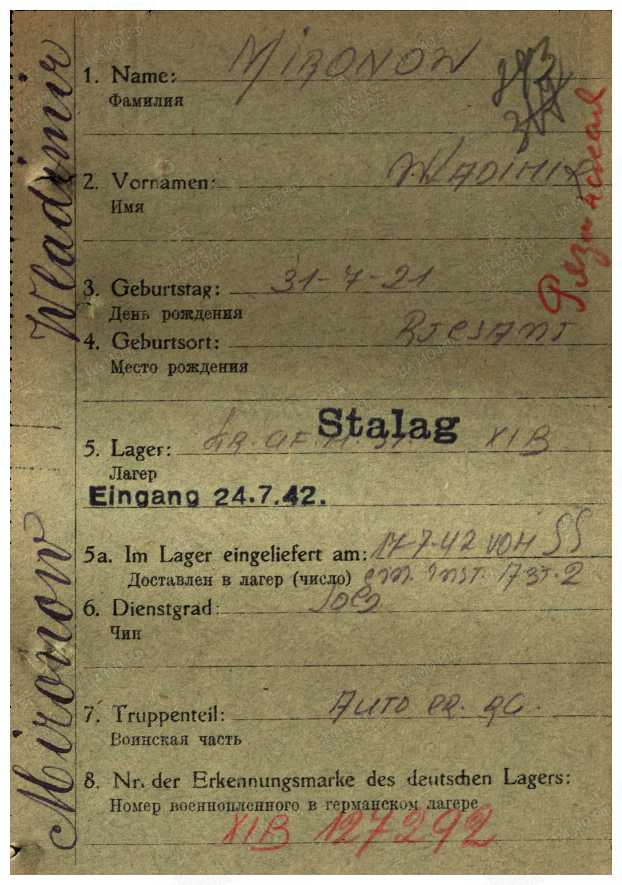 Wladimir
Mironow
1. Name: MIRONOW
Фамилия
2. Vornamen: WLADIMIR
Имя
3. Geburtstag: 31-7-21
День рождения
4. Geburtsort: RJESANJ
Место рождения
5. Lager: Stalag XI B
Лагер
Eingang 24.7.42.
5a. Im Lager eingeliefert am: 17-7-42 VOM SS
Доставлен в лагер (число)
6. Dienstgrad:
Чин
7. Truppenteil: AUTO
Воинская часть
8. Nr. der Erkennungsmarke des deutschen Lagers:
Номер военнопленного в германском лагере
XIB 127292